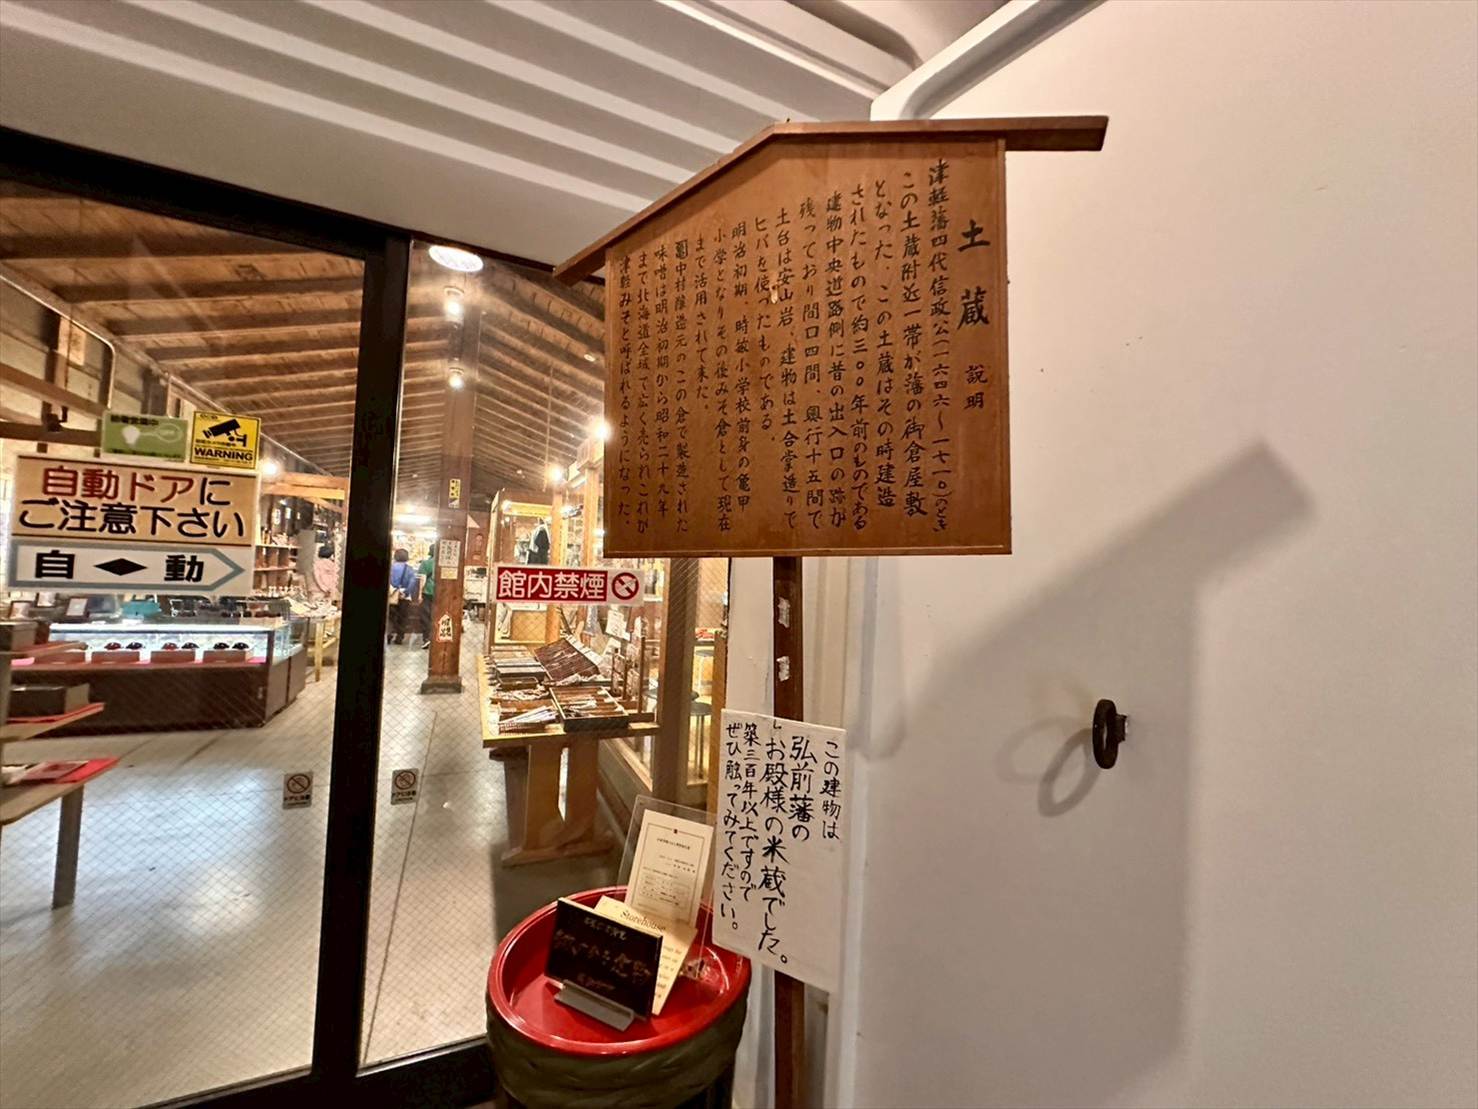 土蔵 説明
津軽藩四代信政公(一六四六〜一七一〇)のとき
この土蔵附近一帯が藩の御倉屋敷
となった、この土蔵はその時建造
されたもので約三〇〇年前のものである
建物中央道路側に昔の出入口の跡が
残っており間口四間、奥行十五間で
土台は安山岩、建物は土合掌造りで
ヒバを使ったものである、
明治初期、時敏小学校前身の亀甲
小学となりその後みそ倉として現在
まで活用されて来た。
中村醸造元のこの倉で製造された
味噌は明治初期から昭和二十九年
まで北海道全域で広く売られこれが
津軽みそと呼ばれるようになった、
この建物は
弘前藩の
お殿様の米蔵でした。
築三百年以上ですので
ぜひ触ってみてください。
WARNING
自動ドアに
ご注意下さい
自 動
館内禁煙
ドアに注意
ドアに注意
Storehouse